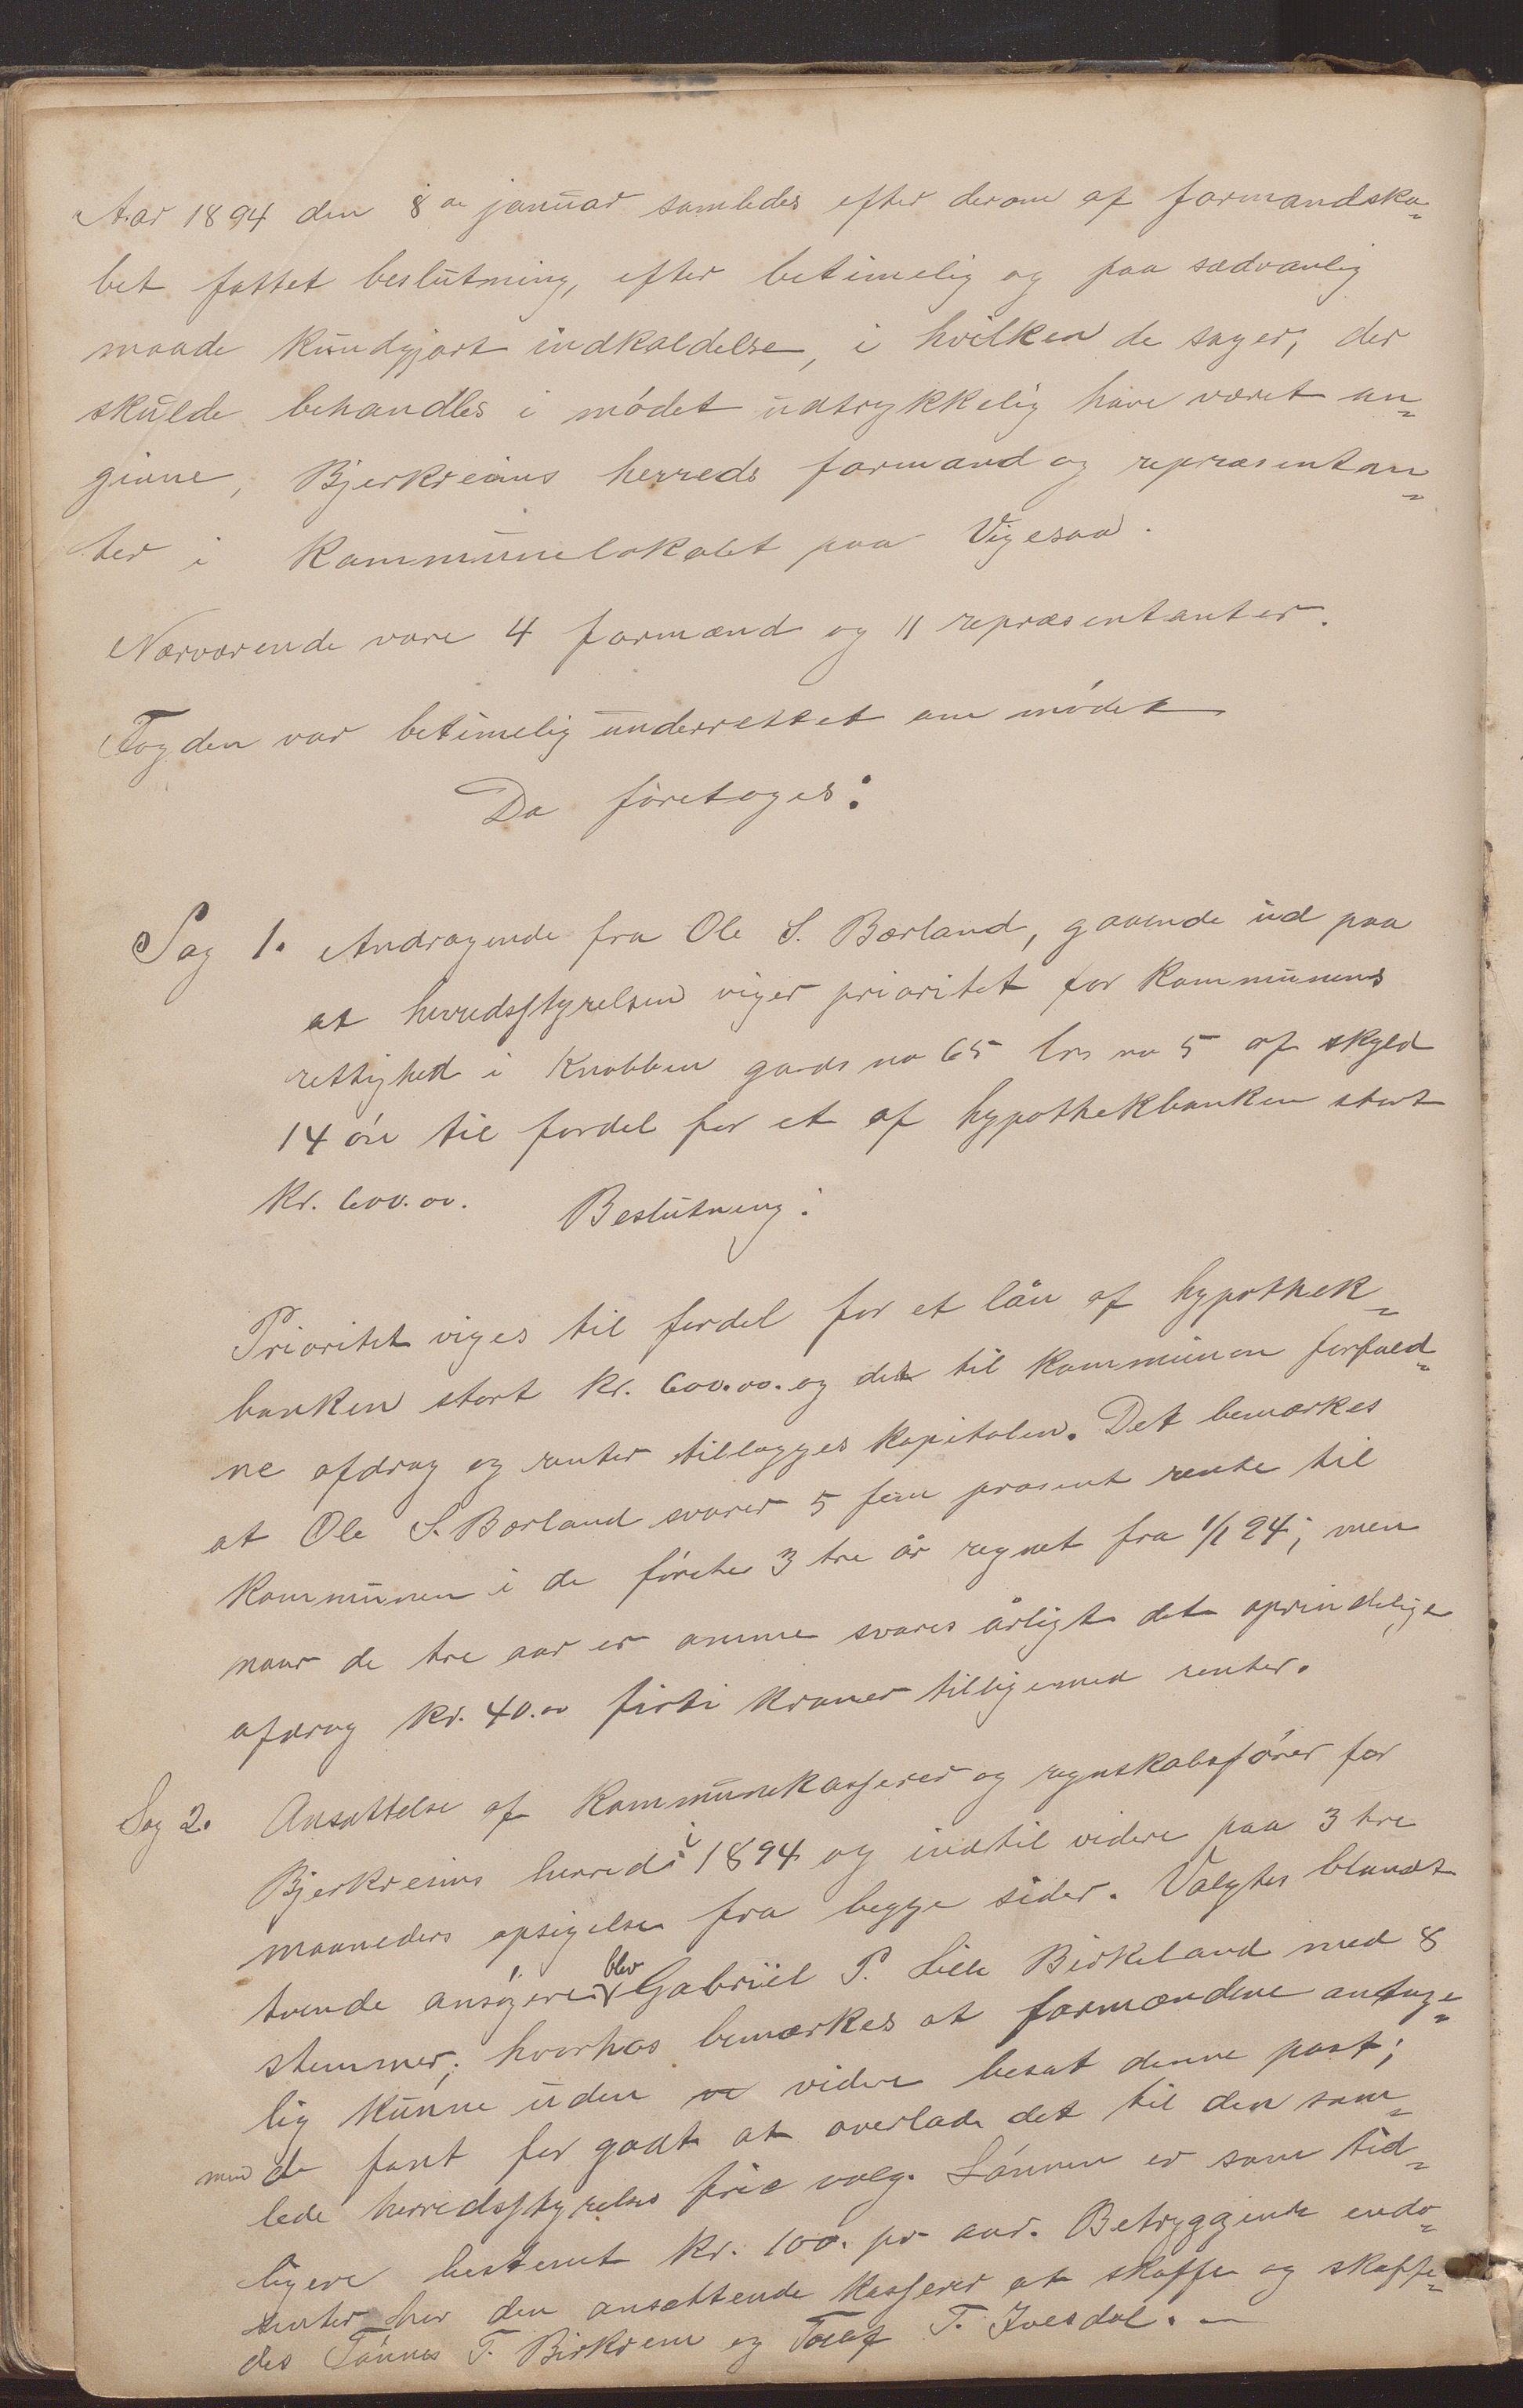 Aar 1894 den 8de januar samledes efter derom af formandska-
bet fattet beslutning, efter betimelig og paa sædvanlig
maade kundgjort indkaldelse, i hvilken de sager, der
skulde behandles i mødet udtrykkelig have været an-
givne, Bjerkreims herreds formænd og repræsentan-
ter i kommunelokalet paa Vigesaa.
Nærværende vare 4 formænd og 11 repræsentanter.
Fogden var betimelig underrettet om mødet
Da foretoges:
Sag 1. Andragende fra Ole S. Bærland, gaaende ud paa
at herredsstyrelsen viger prioritet for kommunens
rettighed i Knobben gards no 65 brs no 5 af skyld
14 øre til fordel for et af hypothekbanken stort
kr. 600.00. Beslutning:
Prioritet viges til fordel for et lån af hypothek-
banken stort kr. 600.00. og det til kommunen forfald-
ne afdrag og renter tillægges kapitalen. Det bemærkes
at Ole S. Bærland svarer 5 fem prosent rente til
kommunen i de første 3 tre år regnet fra 1/1 94; men
naar de tre aar er omme svares årligt det oprindelige
afdrag kr. 40.00 firti kroner tilligemed renter.
Sag 2. Ansættelse af kommunekasserer og regnskabsfører for
Bjerkreims herred i 1894 og indtil videre paa 3 tre
maaneders opsigelse fra begge sider. Valgtes blandt
tvende ansøgere blev Gabriel P. Lille Birkeland med 8
stemmer; hvorhos bemærkes at formændene antage-
lig kunne uden ve videre besat denne post;
men de fant for godt at overlade det til den sam-
lede herredsstyrelses frie valg. Lønnen er som tid-
ligere bestemt kr. 100. pr aar. Betryggende endo-
senter har den ansættende kasserer at skaffe og skaffe-
des Tønnes T. Birkrem og Tollef T. Ivesdal. —